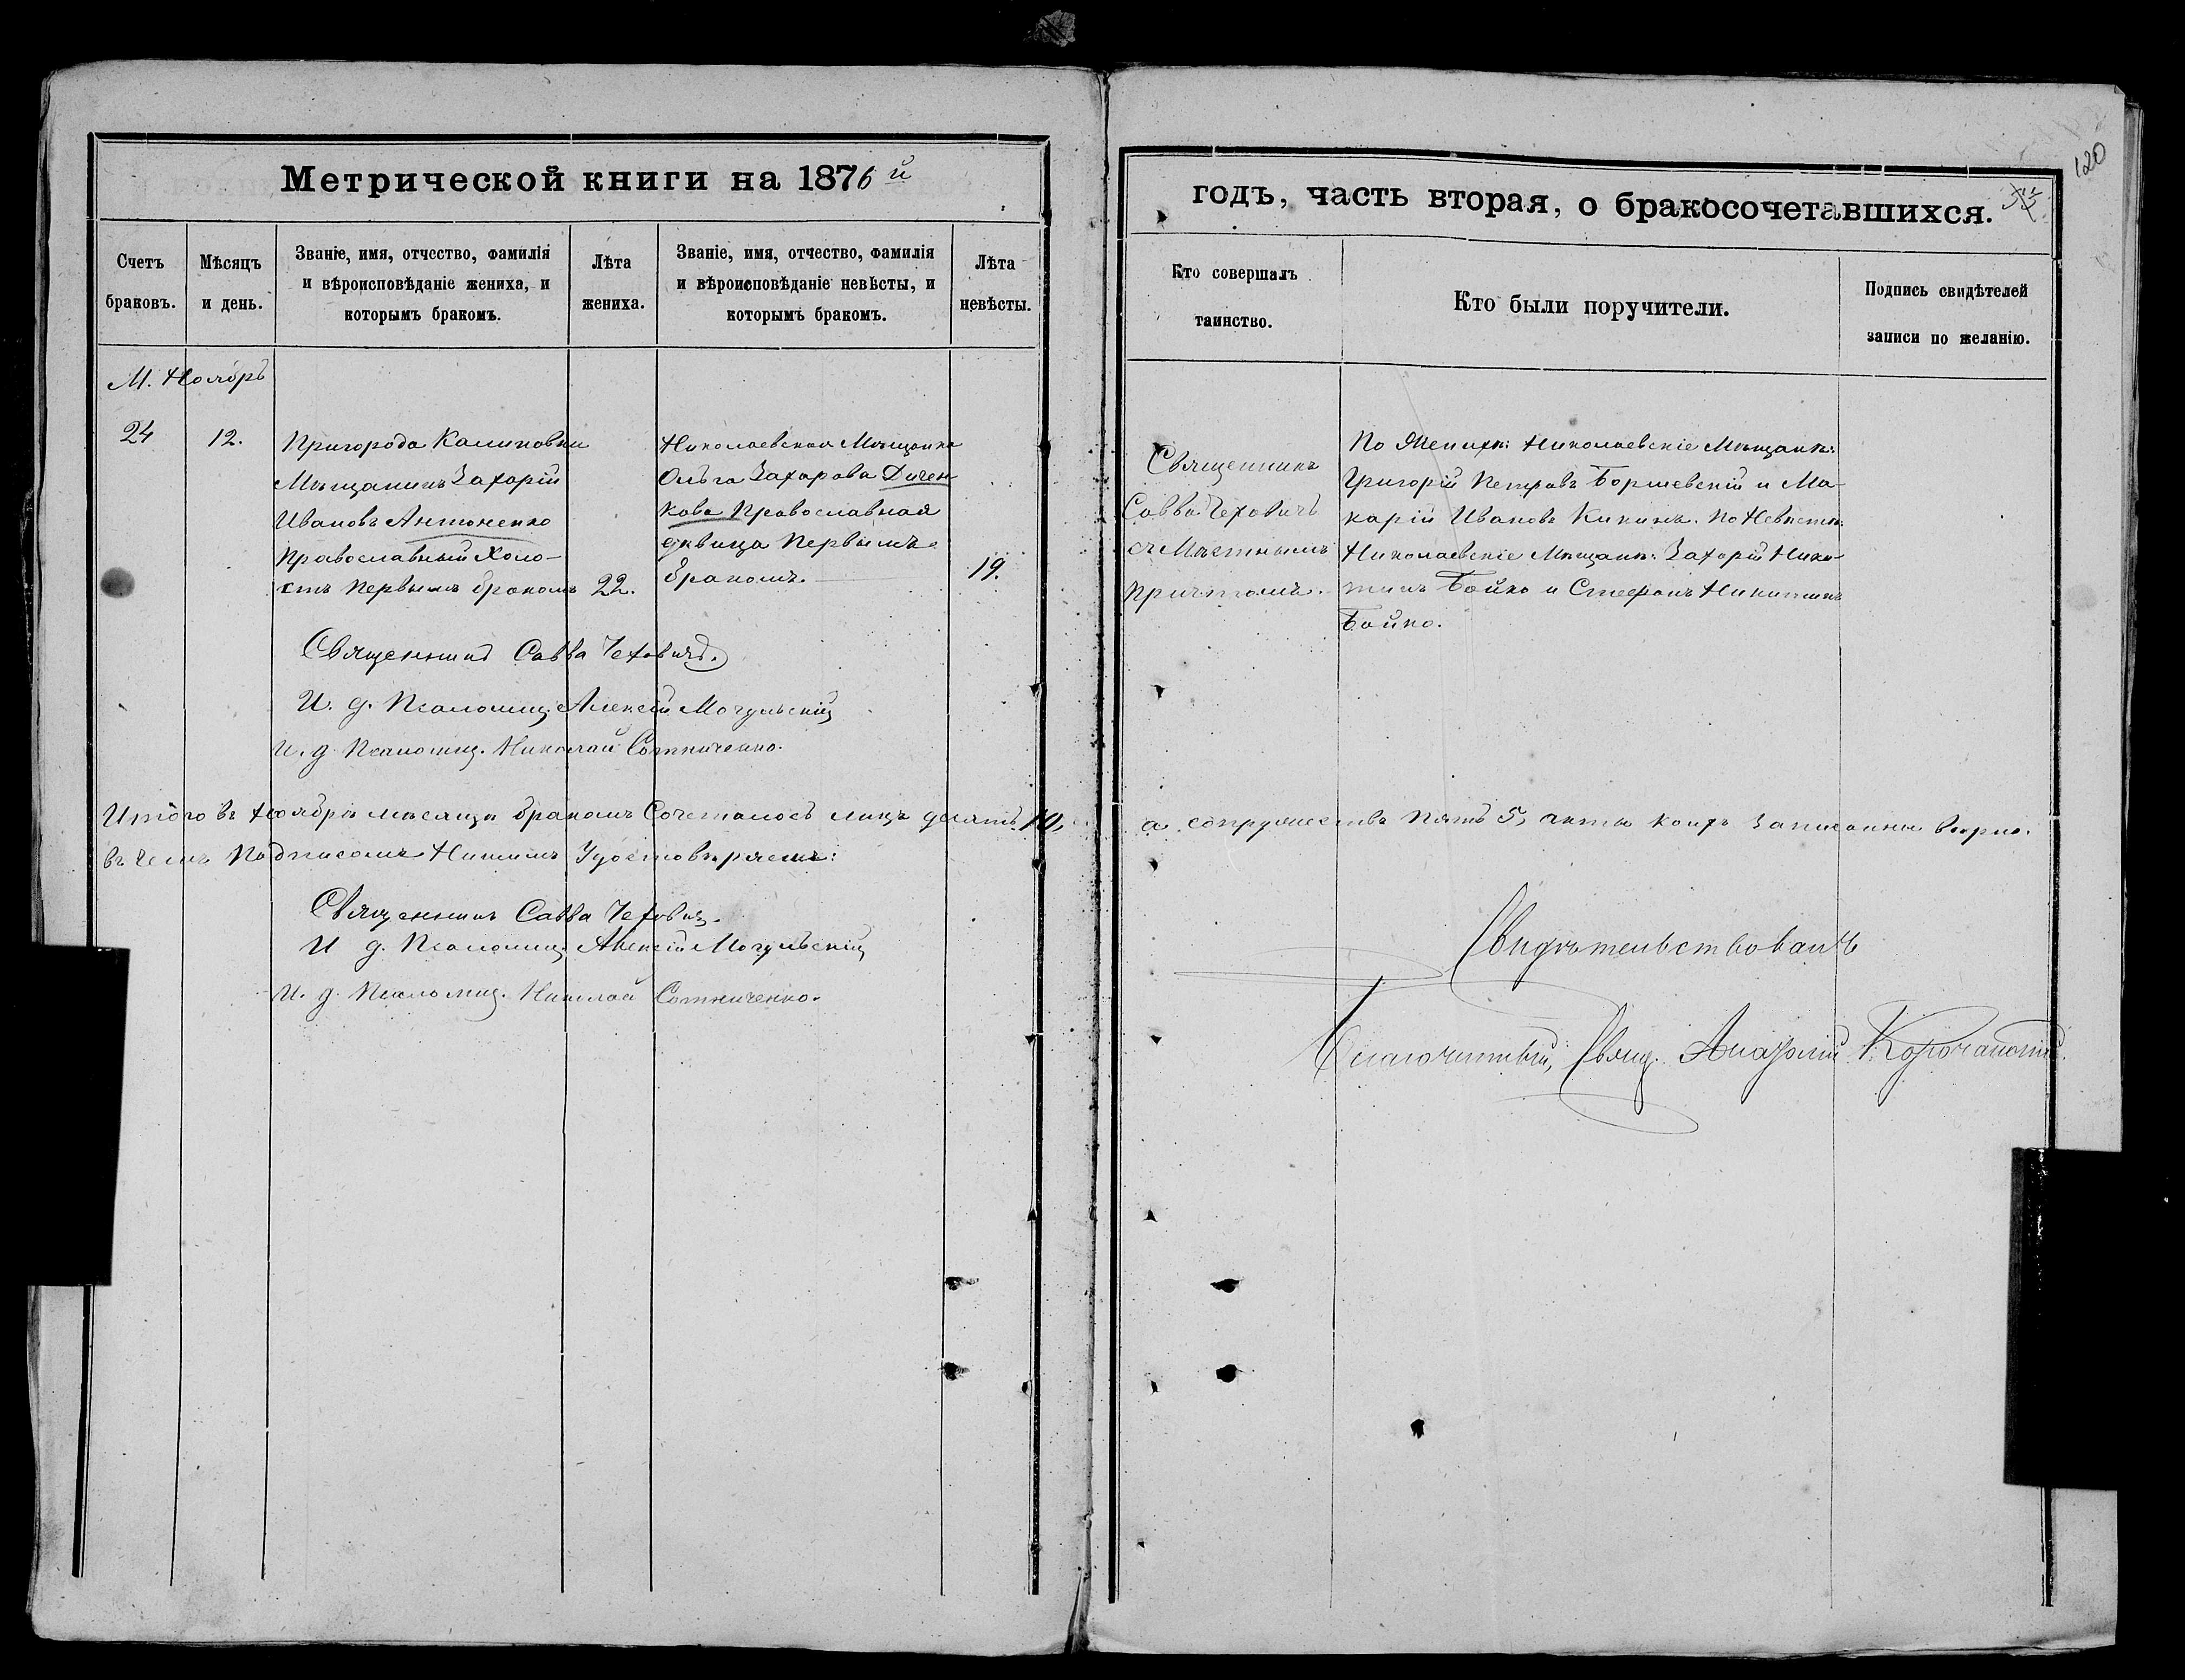 Метрической книги на 1876й
Счетъ браковъ.
Мѣсяцъ и день.
Званіе, имя, отчество, фамилія и вѣроисповѣданіе жениха, и которымъ бракомъ.
Лѣта жениха.
Званіе, имя, отчество, фамилія и вѣроисповѣданіе невѣсты, и которымъ бракомъ.
Лѣта невѣсты.
М. Ноябрь
24
12.
Пригорода Калиновки
Мѣщанинъ Захарій
Ивановъ Антоненко
Православный Холо-
стъ первымъ бракомъ
22.
Николаевская Мѣщанка
Ольга Захарова Дичен-
кова Православная
дѣвица Первымъ
бракомъ.
19.
Священникъ Савва Чеховичъ.
И. д. Псаломщ. Алексій Могульскій
И. д. Псаломщ. Николай Сотниченко.
Итого въ Ноябрѣ мѣсяцѣ бракомъ Сочеталось лицъ десять 10,
въ чемъ Подписомъ Нашимъ Удостовѣряемъ:
Священникъ Савва Чехович.
И д. Псаломщ. Алексій Могульскій
И. д. Псаломщ. Николай Сотниченко.
годъ, часть вторая, о бракосочетавшихся.
120
Кто совершалъ таинство.
Кто были поручители.
Подпись свидѣтелей записи по желанію.
Священникъ
Савва Чеховичъ
съ Мѣстнымъ
причтомъ.
По Женихѣ: Николаевскіе Мѣщанѣ:
Григорій Петровъ Боршевскій и Ма-
карій Ивановъ Кикинъ. По Невѣстѣ:
Николаевскіе Мѣщанѣ: Захарій Ники-
тинъ Бойко и Стефанъ Никитинъ
Бойко.
а супружествъ Пять 5, акты коихъ Записанны вѣрно.
Свидѣтельствовалъ
Благочинный, Свящ.